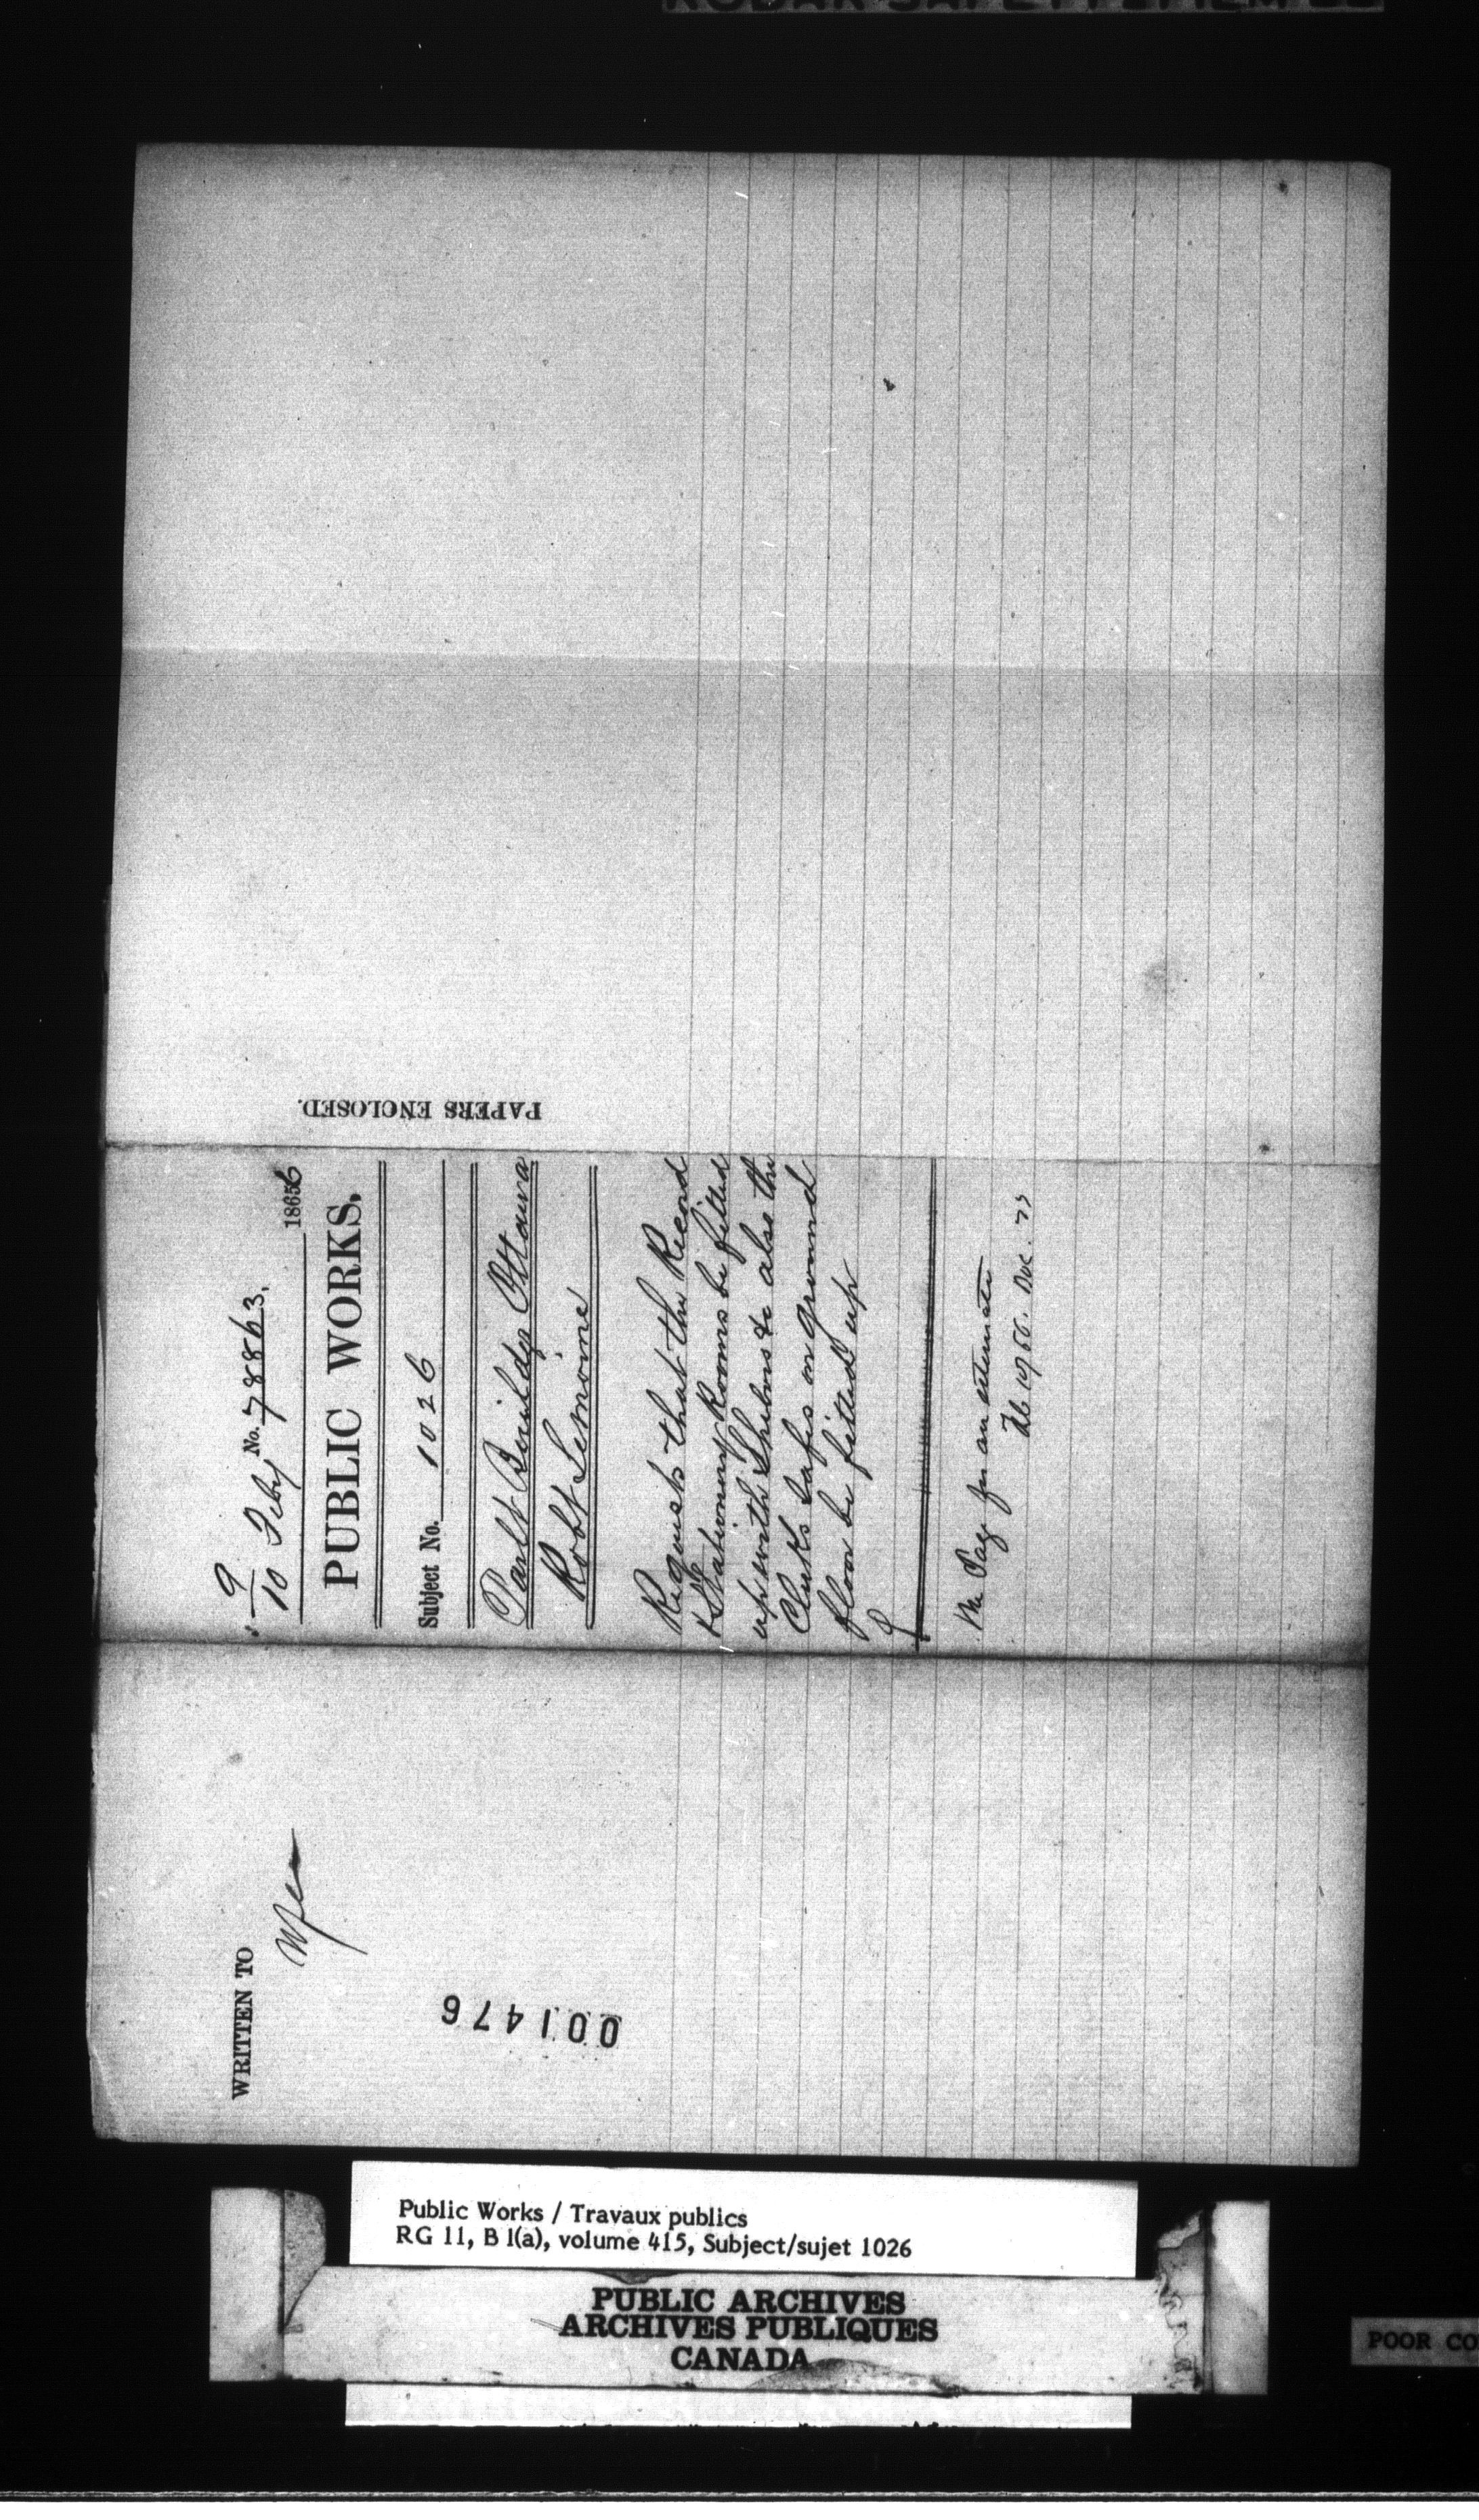 KODAK SAFETY FILM
9
10 Feby No. 78863. 18656
PUBLIC WORKS.
Subject No. 1026
Parlt Buildgs Ottawa
Robt Lemoine
Requests that the Record
& Stationery Rooms be fitted
up with Shelves &c also the
Clerks safes on ground
floor be fitted up
Mr Page for an estimate
PAPERS ENCLOSED.
WRITTEN TO
001476
Public Works / Travaux publics
RG 11, B 1(a), volume 415, Subject/sujet 1026
PUBLIC ARCHIVES
ARCHIVES PUBLIQUES
CANADA
POOR CO